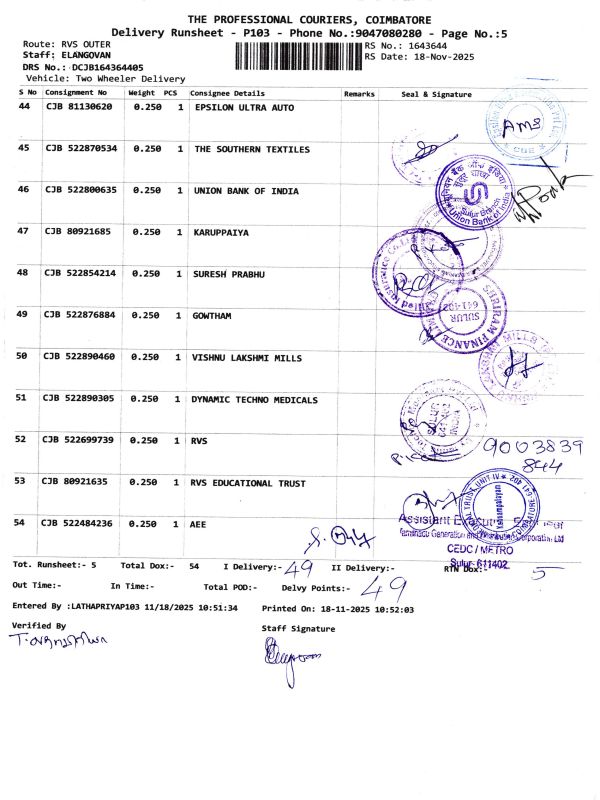 THE PROFESSIONAL COURIERS, COIMBATORE
Delivery Runsheet - P103 - Phone No.:9047080280 - Page No.:5
Route: RVS OUTER
RS No.: 1643644
Staff: ELANGOVAN
RS Date: 18-Nov-2025
DRS No.: DCJB164364405
Vehicle: Two Wheeler Delivery
S No Consignment No Weight PCS Consignee Details Remarks Seal & Signature
44 CJB 81130620 0.250 1 EPSILON ULTRA AUTO
AMS
CBE
45 CJB 522870534 0.250 1 THE SOUTHERN TEXTILES
46 CJB 522800635 0.250 1 UNION BANK OF INDIA
यूनियन बैंक ऑफ इंडिया
Sulur Branch
Union Bank of India
47 CJB 80921685 0.250 1 KARUPPAIYA
48 CJB 522854214 0.250 1 SURESH PRABHU
49 CJB 522876884 0.250 1 GOWTHAM
SHRIRAM FINANCE LIMITED
SULUR
641-402
50 CJB 522890460 0.250 1 VISHNU LAKSHMI MILLS
51 CJB 522890305 0.250 1 DYNAMIC TECHNO MEDICALS
SULUR
641 402
INDIA
52 CJB 522699739 0.250 1 RVS
9003839
844
53 CJB 80921635 0.250 1 RVS EDUCATIONAL TRUST
54 CJB 522484236 0.250 1 AEE
Assistant Executive Engineer
Tamilnadu Generation and Distribution Corporation Ltd
CEDC / METRO
Sulur-641402
Tot. Runsheet:- 5 Total Dox:- 54 I Delivery:- 49 II Delivery:- RTN Dox:- 5
Out Time:- In Time:- Total POD:- Delvy Points:- 49
Entered By :LATHAPRIYAP103 11/18/2025 10:51:34 Printed On: 18-11-2025 10:52:03
Verified By
Staff Signature